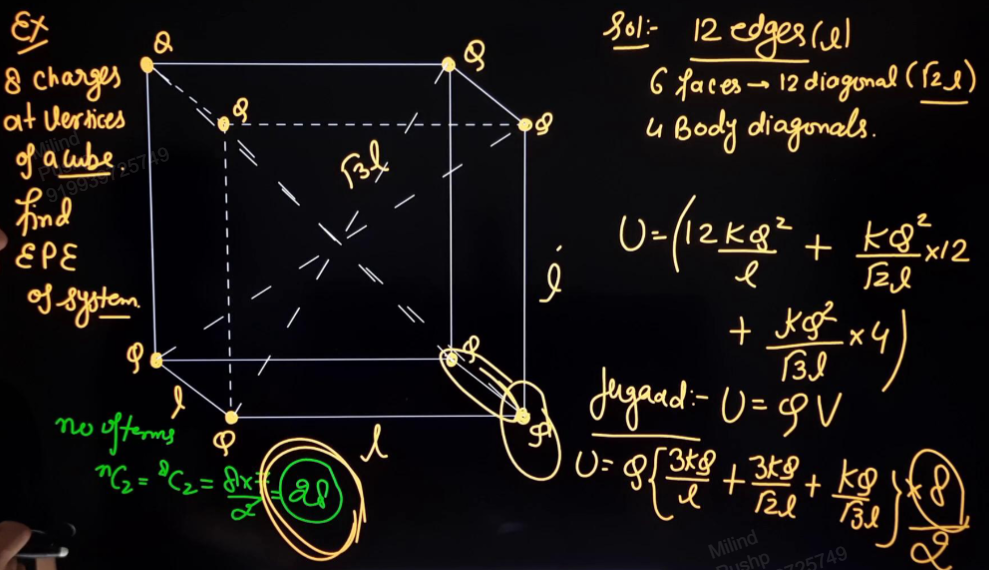 Ex
8 charges
at vertices
of a cube.
find
EPE
of system.
Q
Q
Q
Q
√3l
l
Q
Q
l
Q
l
Q
no of terms
ⁿC₂ = ⁸C₂ = 8×7/2 = 28
Sol:- 12 edges (l)
6 faces → 12 diagonal (√2l)
4 Body diagonals.
U = (12 KQ²/l + KQ²/√2l × 12
+ KQ²/√3l × 4)
Jugaad:- U = QV
U = Q{3KQ/l + 3KQ/√2l + KQ/√3l} × 8/2
Milind
Pushp
919939725749
Milind
Pushp